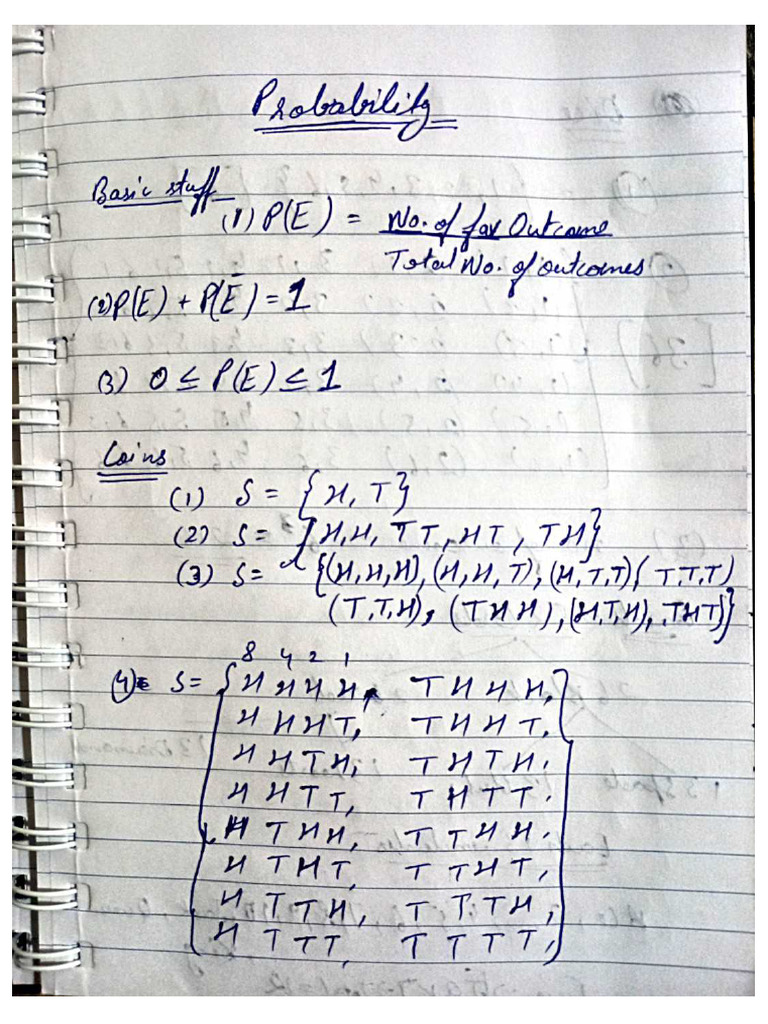 Probability
Basic stuff
(1) P(E) = No. of fav Outcome
Total No. of outcomes
(2) P(E) + P(Ē) = 1
(3) 0 ≤ P(E) ≤ 1
Coins
(1) S = {H, T}
(2) S = {H,H, TT, HT, TH}
(3) S = {(H,H,H), (H,H,T), (H,T,T), (T.T.T)
(T.T,H), (THH), (H,T,H), THT)}
8 4 2 1
(4) S = {H H H H, T H H H,
H H H T, T H H T,
H H T H, T H T H,
H H T T, T H T T.
H T H H, T T H H.
H T H T, T T H T,
H T T H, T T T H,
H T T T, T T T T,}